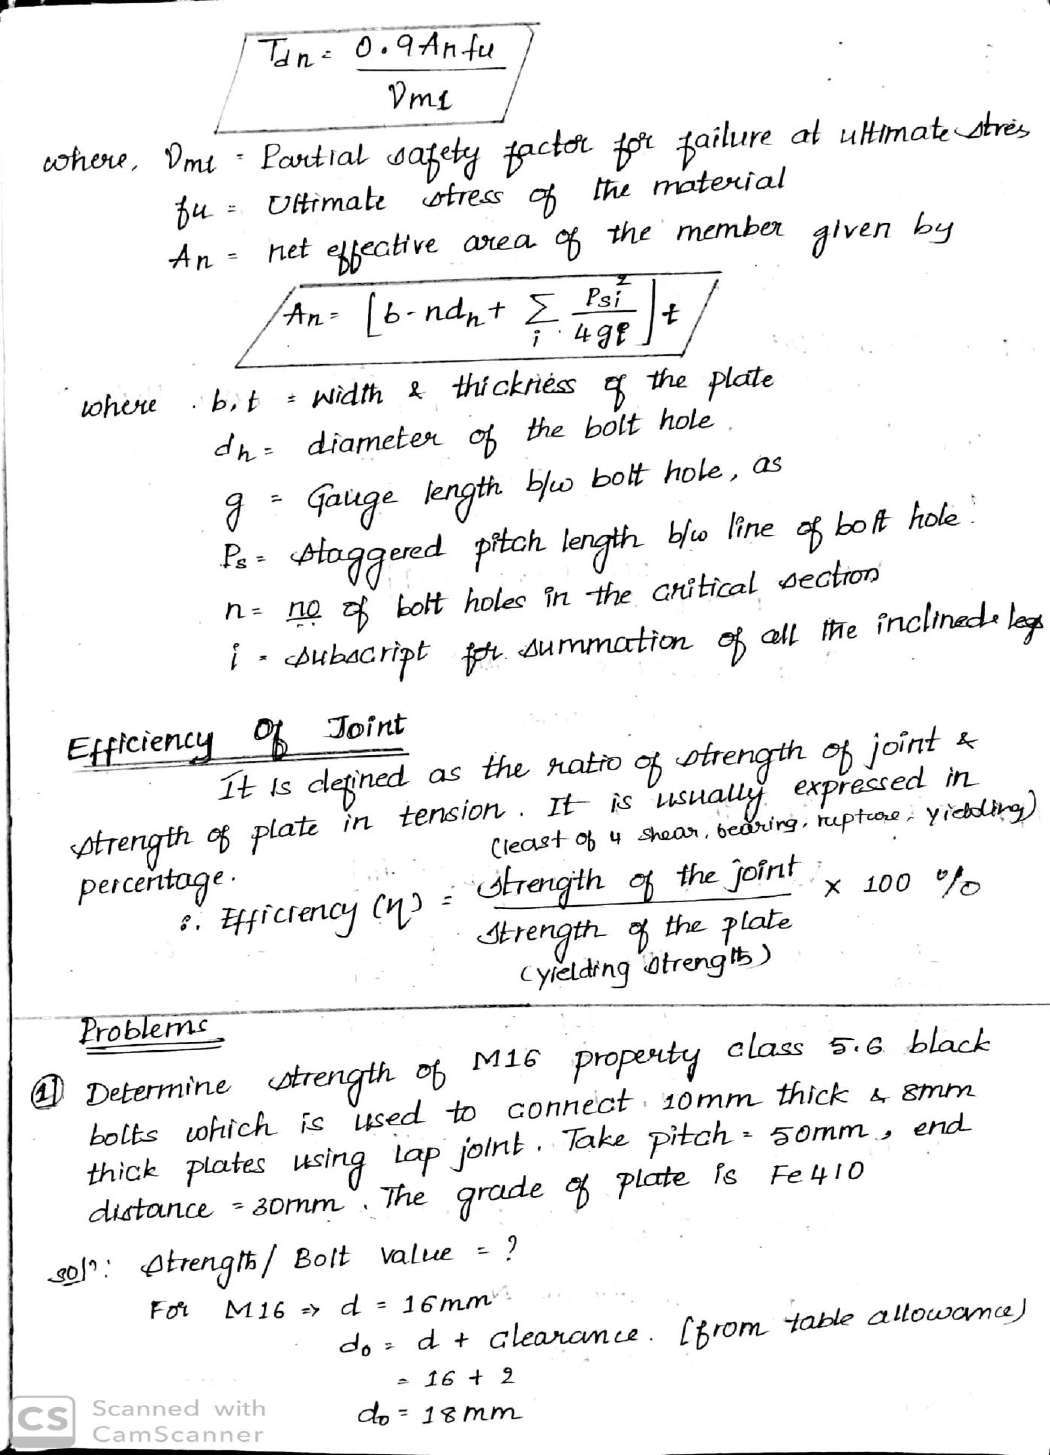 Tdn = 0.9 An fu
γm1
where, γm1 = Partial safety factor for failure at ultimate stres
fu = Ultimate stress of the material
An = net effective area of the member given by
An = [b - ndh + Σ Psi² / 4gi] t
i
where b, t = width & thickness of the plate
dh = diameter of the bolt hole
g = Gauge length b/w bolt hole, as
Ps = staggered pitch length b/w line of bolt hole
n = no of bolt holes in the critical section
i = subscript for summation of all the inclined legs
Efficiency Of Joint
It is defined as the ratio of strength of joint &
strength of plate in tension. It is usually expressed in
percentage. (least of 4 shear, bearing, rupture, yielding)
∴ Efficiency (η) = strength of the joint x 100 %
strength of the plate
(yielding strength)
Problems
1) Determine strength of M16 property class 5.6 black
bolts which is used to connect 10mm thick & 8mm
thick plates using lap joint. Take pitch = 50mm, end
distance = 30mm. The grade of plate is Fe410
soln: strength/ Bolt value = ?
For M16 => d = 16mm
do = d + clearance. (from table allowance)
= 16 + 2
do = 18mm
CS Scanned with
CamScanner